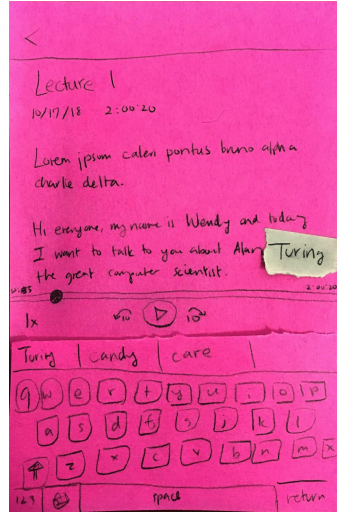 <
Lecture 1
10/17/18 2:00:20
Lorem ipsum calen pontus bruno alpha
charlie delta.
Hi everyone, my name is Wendy and today
I want to talk to you about Alan Turing
the great computer scientist.
0:05 2:00:20
1x 10 10
Turing candy care
q w e r t y u i o p
a s d f g j k l
z x c v b n m x
123 space return